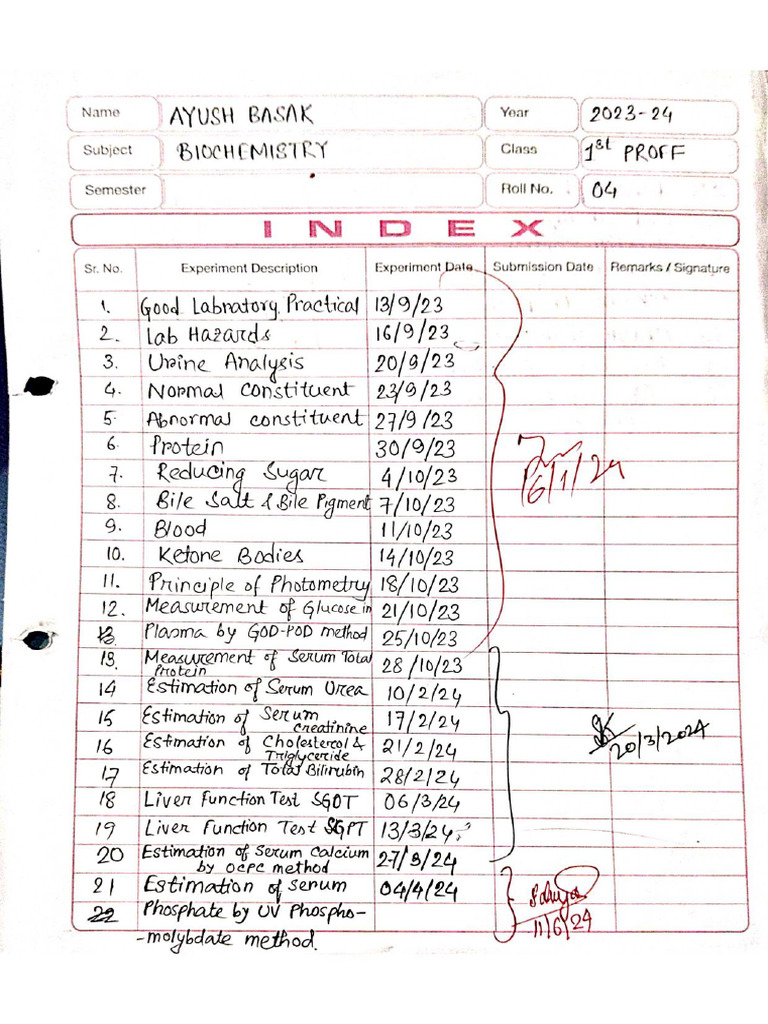 Name AYUSH BASAK Year 2023-24
Subject BIOCHEMISTRY Class 1st PROFF
Semester Roll No. 04
INDEX
Sr. No. Experiment Description Experiment Date Submission Date Remarks / Signature
1. Good Labratory Practical 13/9/23
2. Lab Hazards 16/9/23
3. Urine Analysis 20/9/23
4. Normal constituent 23/9/23
5. Abnormal constituent 27/9/23
6. Protein 30/9/23
7. Reducing Sugar 4/10/23
16/1/24
8. Bile Salt & Bile Pigment 7/10/23
9. Blood 11/10/23
10. Ketone Bodies 14/10/23
11. Principle of Photometry 18/10/23
12. Measurement of Glucose in 21/10/23
13. Plasma by GOD-POD method 25/10/23
13. Measurement of Serum Total Protein 28/10/23
14 Estimation of Serum Urea 10/2/24
15 Estimation of Serum creatinine 17/2/24
20/3/2024
16 Estimation of Cholesterol & Triglyceride 21/2/24
17 Estimation of Total Bilirubin 28/2/24
18 Liver Function Test SGOT 06/3/24
19 Liver Function Test SGPT 13/3/24
20 Estimation of Serum Calcium by OCPC method 27/3/24
21 Estimation of serum 04/4/24
22 Phosphate by UV Phospho-
11/6/24
-molybdate method.